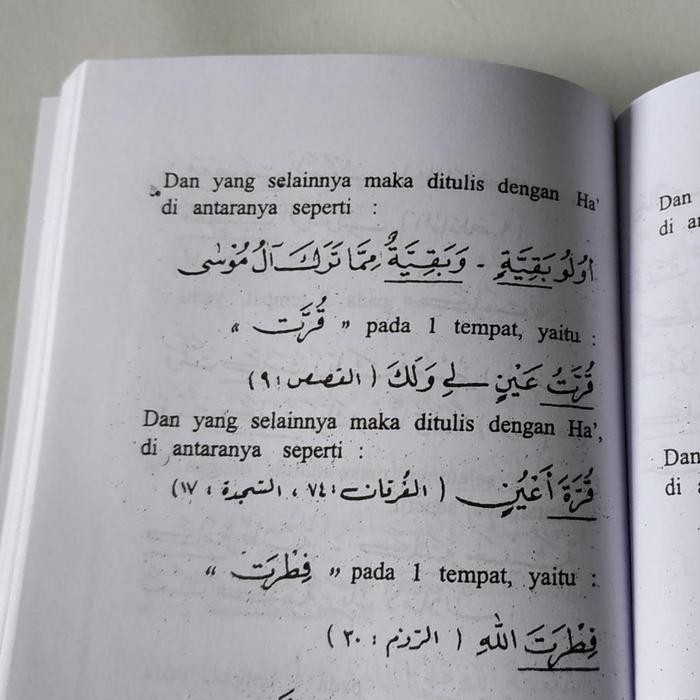 Dan yang selainnya maka ditulis dengan Ha'
di antaranya seperti :
أُولُو بَقِيَّةٍ - وَبَقِيَّةٌ مِمَّا تَرَكَ آلُ مُوْسٰى
« قُرَّت » pada 1 tempat, yaitu :
قُرَّتُ عَيْنٍ لِي وَلَكَ ( القصص : ٩ )
Dan yang selainnya maka ditulis dengan Ha',
di antaranya seperti :
قُرَّةَ أَعْيُنٍ ( الفُرقان : ٧٤ ، السّجدة : ١٧ )
« فِطْرَت » pada 1 tempat, yaitu :
فِطْرَتَ اللهِ ( الرّوم : ٣٠ )
Dan
di
Dan
di